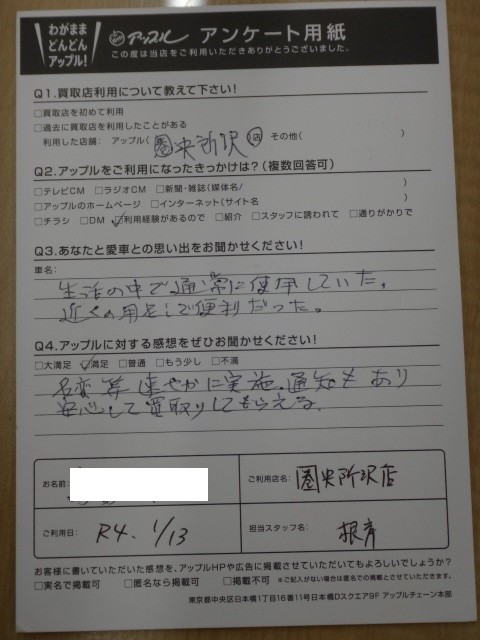 わがまま
どんどん
アップル!
アップル アンケート用紙
この度は当店をご利用いただきありがとうございました。
Q1.買取店利用について教えて下さい!
□買取店を初めて利用
□過去に買取店を利用したことがある
利用した店舗: アップル( 圏央所沢 店 その他( )
Q2.アップルをご利用になったきっかけは?(複数回答可)
□テレビCM □ラジオCM □新聞・雑誌(媒体名/ )
□アップルのホームページ □インターネット(サイト名 )
□チラシ □DM ☑利用経験があるので □紹介 □スタッフに誘われて □通りがかりで
Q3.あなたと愛車との思い出をお聞かせください!
車名:
生活の中で通常に使用していた。
近くの用足しで便利だった。
Q4.アップルに対する感想をぜひお聞かせください!
□大満足 ☑満足 □普通 □もう少し □不満
名変等速やかに実施。通知もあり
安心して買取りしてもらえる。
お名前:
ご利用店名: 圏央所沢店
ご利用日: R4. 1/13
担当スタッフ名: 根彦
お客様に書いていただいた感想を、アップルHPや広告に掲載させていただいてもよろしいでしょうか?
□実名で掲載可 □匿名なら掲載可 □掲載不可 ※ご記入がない場合は匿名での掲載とさせていただきます。
東京都中央区日本橋1丁目16番11号日本橋Dスクエア9F アップルチェーン本部